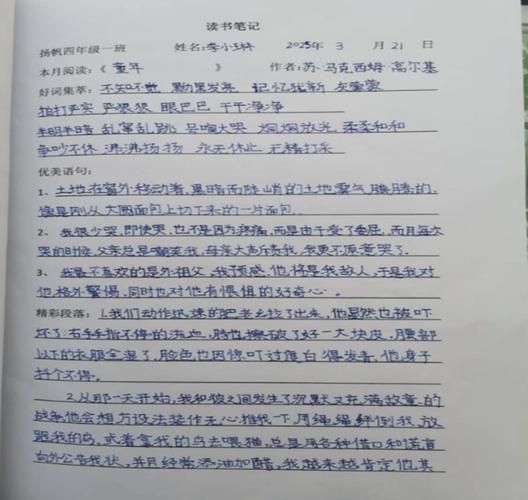 读书笔记
扬帆四年级一班 姓名:李小琳 2025年 3 月 21 日
本月阅读:《 童年 》 作者:苏·马克西姆·高尔基
好词集萃:不知不觉 黝黑发亮 记忆犹新
拍打严实 严狠狠 眼巴巴 干干净净
半明半暗 乱窜乱跳 号啕大哭 炯炯放光 柔柔和和
争吵不休 沸沸扬扬 永无休止 无精打采
优美语句:
1、土地在窗外移动着,黑暗而陡峭的土地雾气腾腾的,
像是刚从大圆面包上切下来的一片面包。
2、我很少哭,即使哭,也不是因为疼痛,而是由于受了委屈,而且每次
哭的时候,父亲总是嘲笑我,母亲大声斥责我,我更不愿意哭了。
3、我最不喜欢的是外祖父,我预感,他将是我敌人,于是我对
他格外警惕,同时也对他有惧怕的好奇心。
精彩段落:1.我们动作迅速的把老乡拉了出来,他显然也被吓
坏了:右手手指不停的流血,脸也擦破了好一大块皮,腰部
以下的衣服全湿了,脸色也因惊吓过度白得发青,他身子
抖个不停。
2.从那一天开始,我和他之间发生了沉默又充满敌意的
战争他会想方设法装作无心推我一下,用绳绳绊倒我,放
跑我的鸟,或者拿我的鸟去喂猫,总是用各种借口和谎言
向外公告我状,并且经常添油加醋,我越来越肯定他其